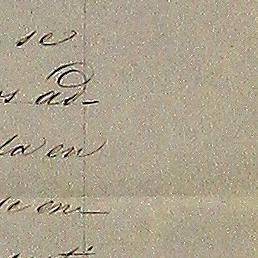 se
s ad-
la en
a en-